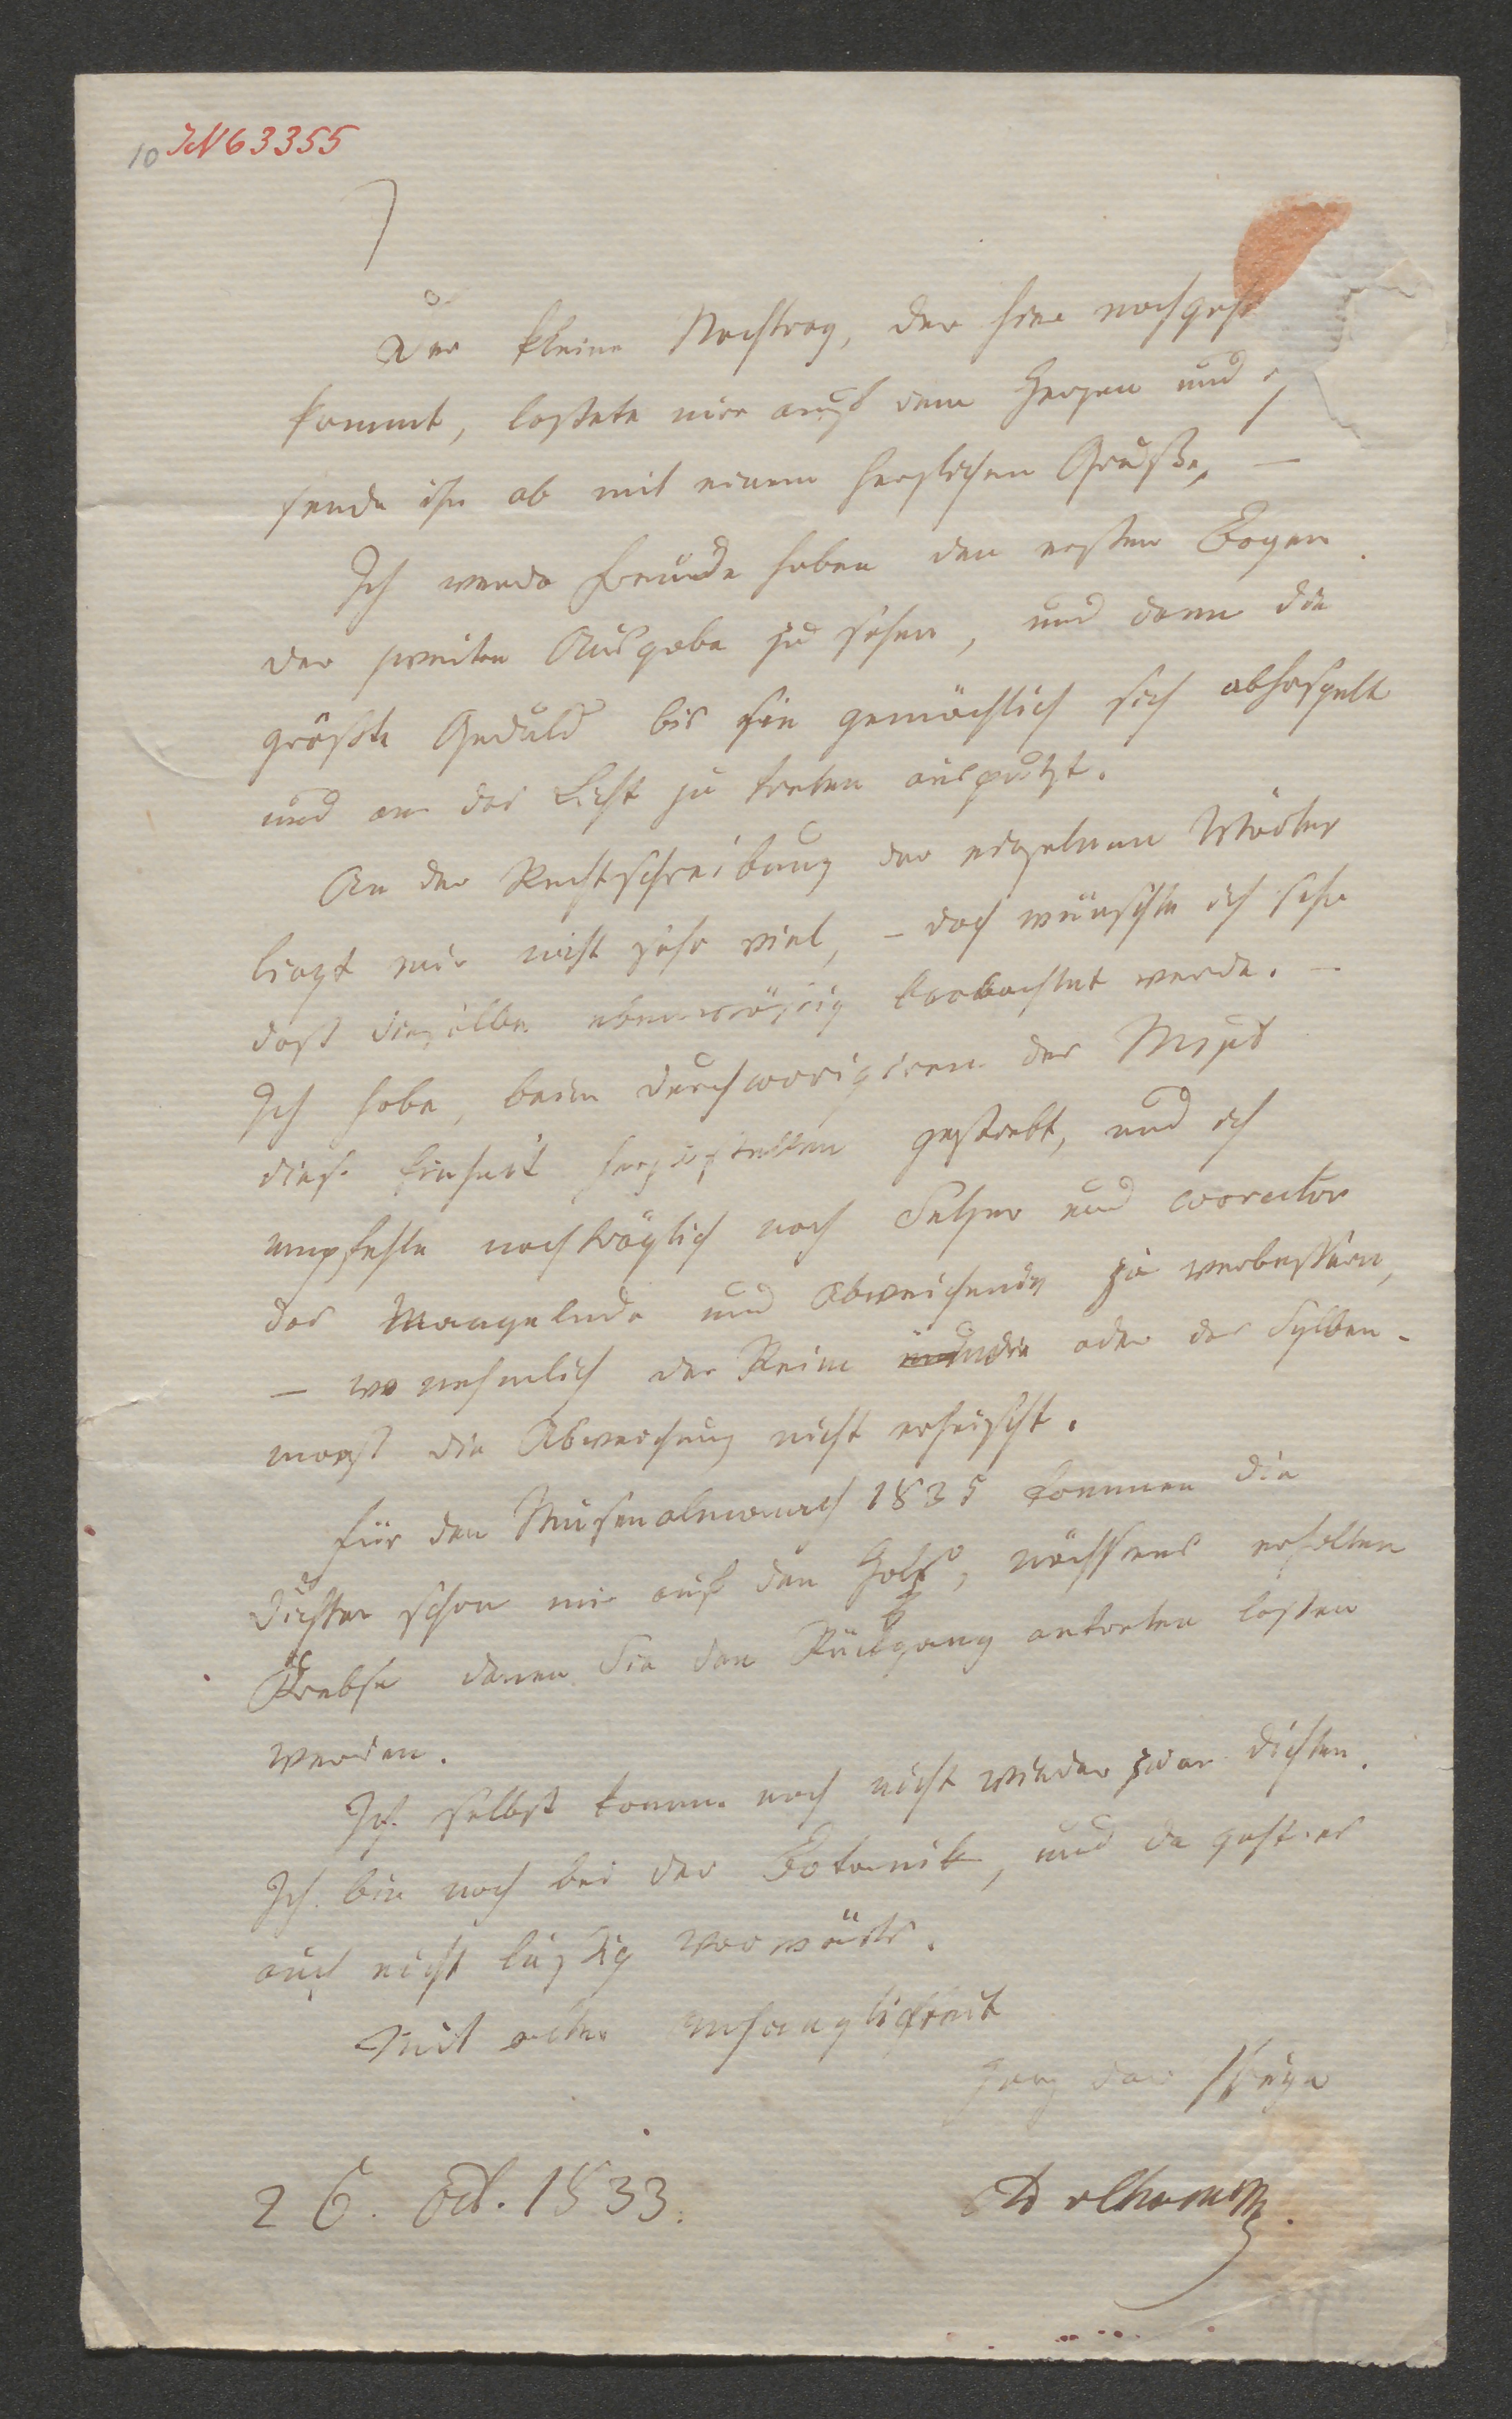 10 IN 63355
Der kleine Nachtrag, der hier nachgeh
kommt, lastete mir auf dem Herzen und
sende ihn ab mit einem herzlichen Gruße, —
Ich werde Freude haben den ersten Bogen
der zweiten Ausgabe zu sehen, und dann die
größte Geduld bis sie gemächlich sich abhaspelt
und an das Licht zu treten ausputzt.
An der Rechtschreibung der einzelnen Wörter
liegt mir nicht sehr viel, – doch wünschte ich sehr
daß dieselbe ebenmäßig beobachtet werde. –
Ich habe, beim durchcorigiren des Mspts
diese Einheit herzustellen gestrebt, und ich
empfehle nachträglich noch Setzer und corector
das Mangelnde und Abweichende zu verbessern,
– wo nehmlich der Reim oder das Sylben-
maaß die Abweichung nicht erheischt.
für den Musenalmanach 1835 kommen die
Dichter schon mir auf den Hals, nächstens erhalten
Krebse denen Sie den Rückgang antreten lassen
werden.
Ich selbst komme noch nicht wieder zum dichten.
Ich bin noch bei der Botanik, und da geht es
auch nicht lustig vorwärts.
Mit alter Anhänglichkeit
ganz der Ihrige
26. Oct. 1833.
Ad v Chamisso.